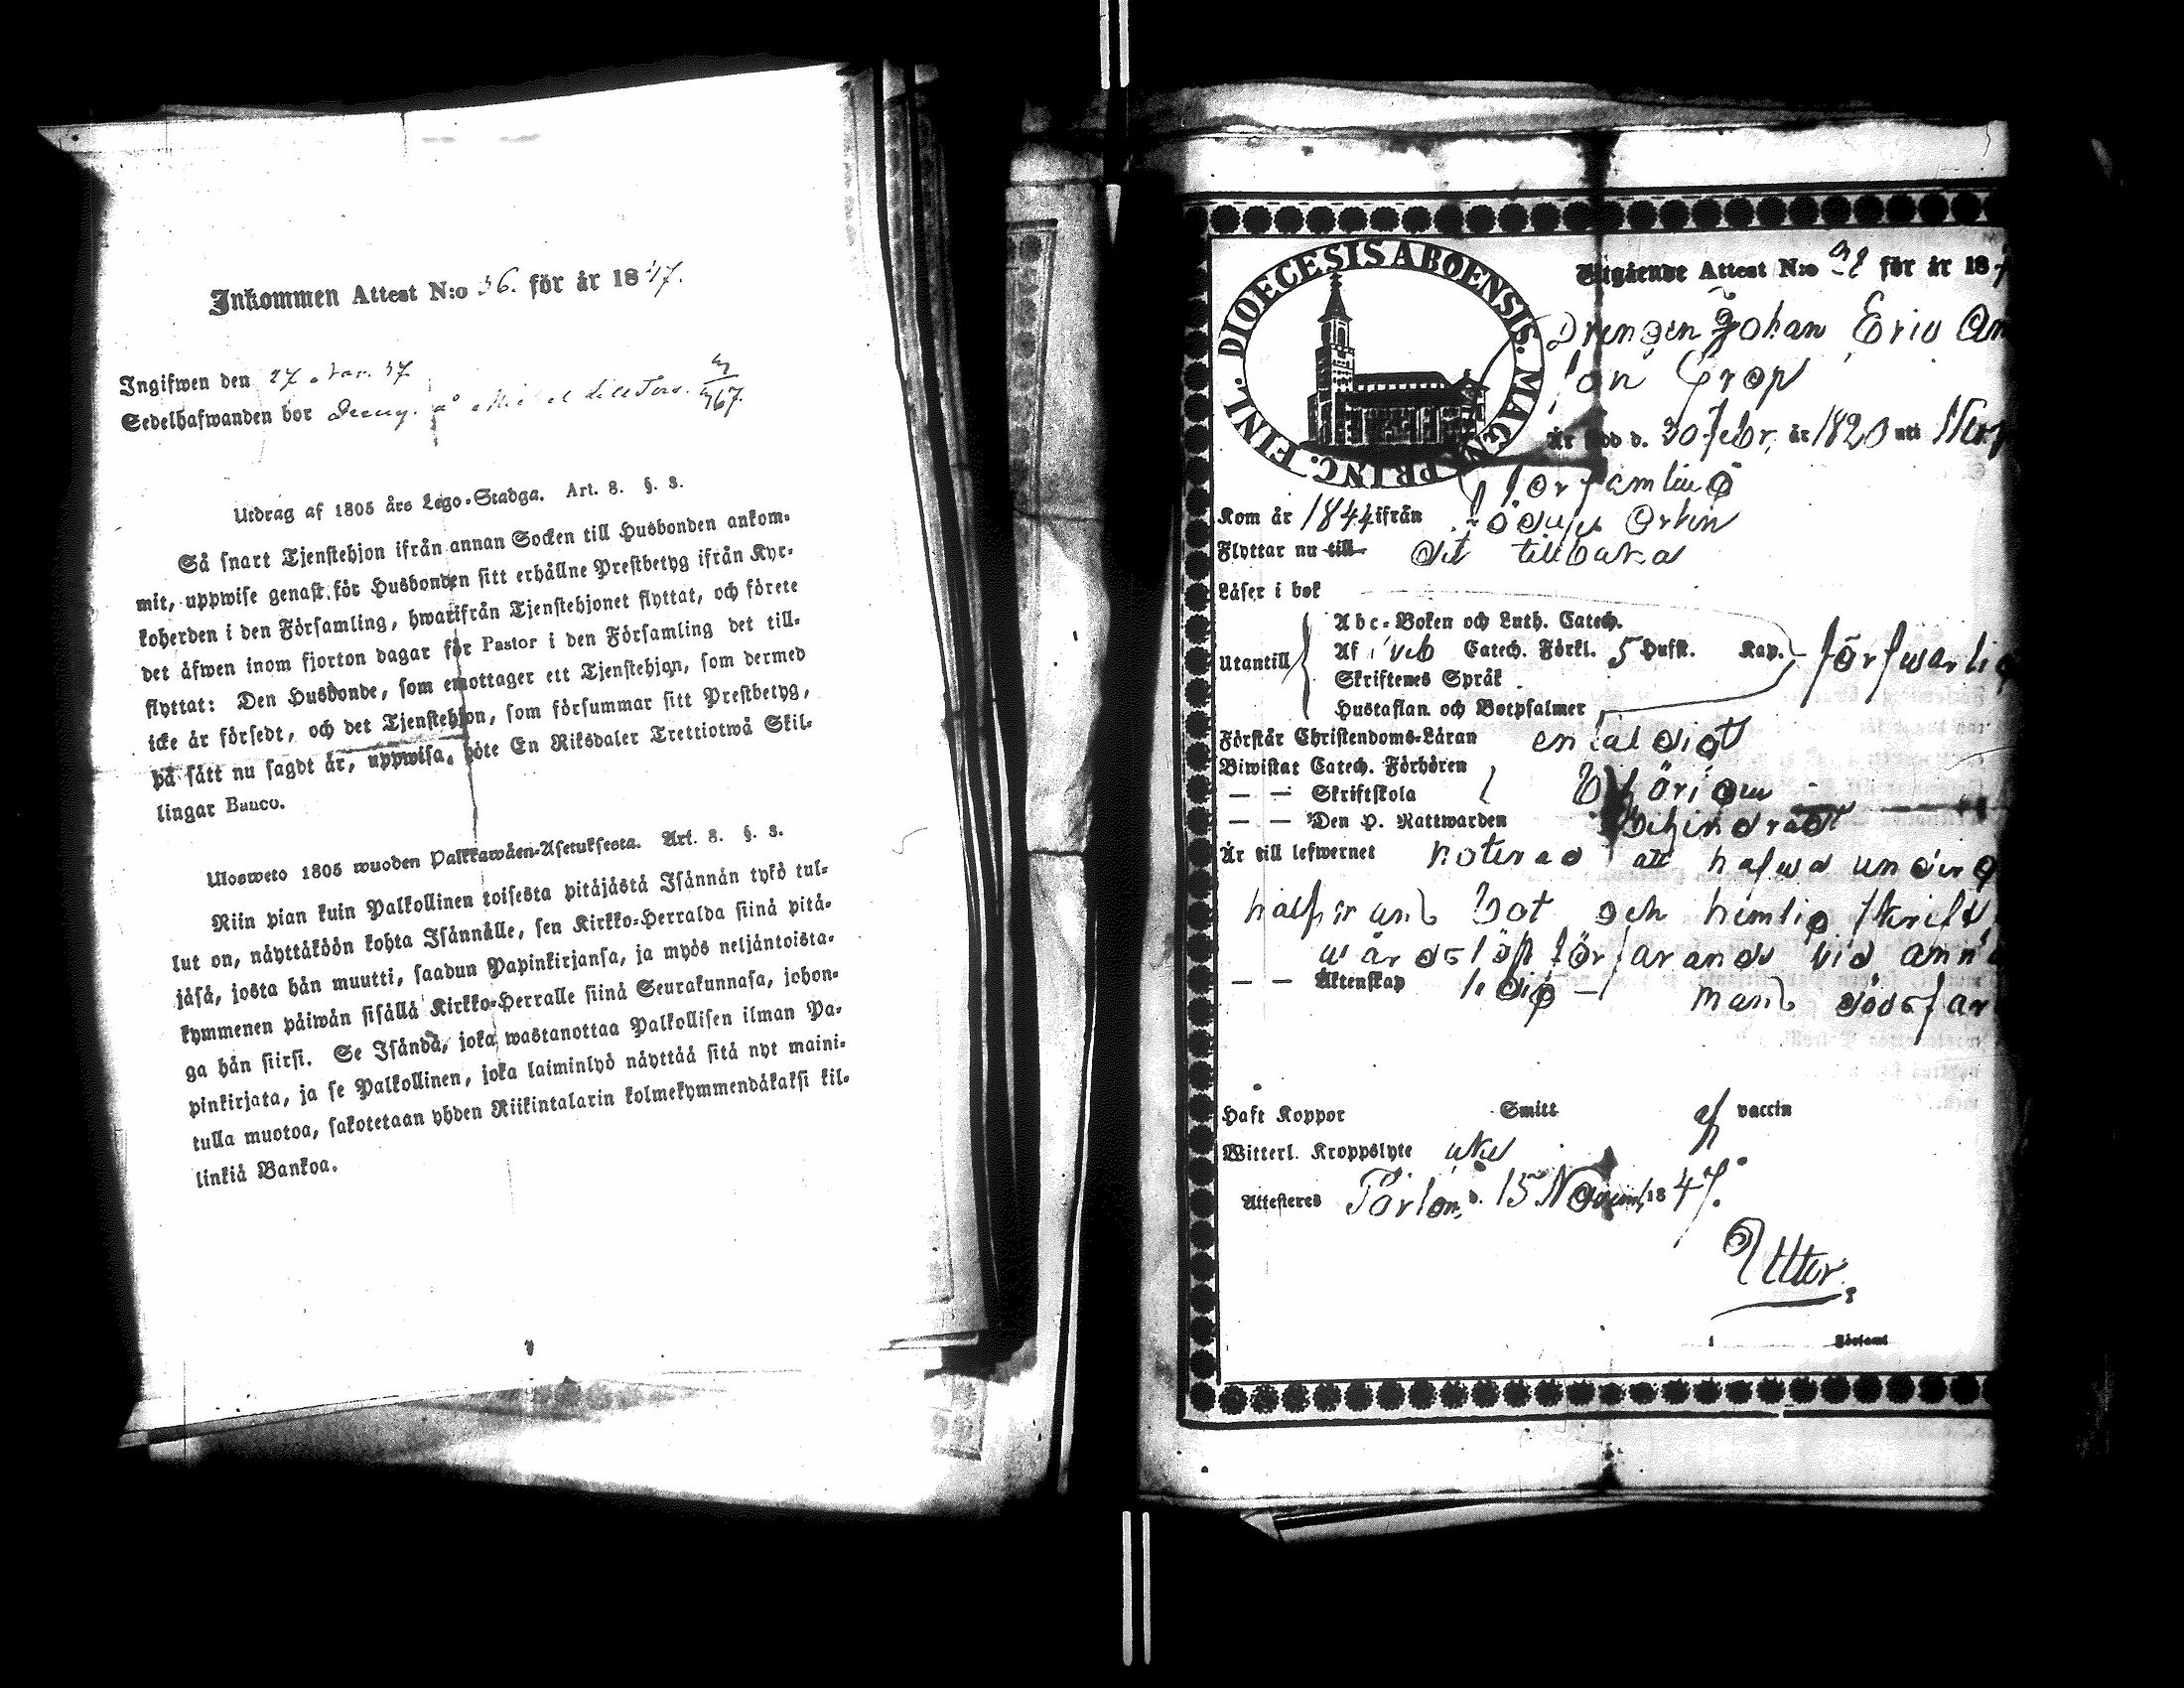 Inkommen Attest N:o 36. för år 1847.
Ingifwen den 27 Nov. 47
Sedelhafwanden bor Dräng. å
567.
Utdrag af 1805 års Lego-Stadga. Art. 8. §. 3.
Så snart Tjenstehjon ifrån annan Socken till Husbonden ankom-
mit, uppwise genast för Husbonden sitt erhållne Prestbetyg ifrån Kyr-
koherden i den Församling, hwarifrån Tjenstehjonet flyttat, och förete
det äfwen inom fjorton dagar för Pastor i den Församling det till-
flyttat: Den Husbonde, som emottager ett Tjenstehjon, som dermed
icke är försedt, och det Tjenstehjon, som försummar sitt Prestbetyg,
på sätt nu sagdt är, uppwisa, böte En Riksdaler Trettiotwå Skil-
lingar Banco.
Ulosweto 1805 wuoden Palkkawäen-Asetuksesta. Art. 8. §. 3.
Niin pian kuin Palkollinen toisesta pitäjästä Isännän tykö tul-
lut on, näyttäköön kohta Isännälle, sen Kirkko-Herralda siinä pitä-
jäsä, josta hän muutti, saadun Papinkirjansa, ja myös neljäntoista-
kymmenen päiwän sisällä Kirkko-Herralle siinä Seurakunnasa, johon-
ga hän siirsi. Se Isändä, joka wastanottaa Palkollisen ilman Pa-
pinkirjata, ja se Palkollinen, joka laiminlyö näyttää sitä nyt maini-
tulla muotoa, sakotetaan yhden Riikintalarin kolmekymmendäkaksi kil-
linkiä Bankoa.
DIOECESIS ABOENSIS. MAGN. PRINC. FINL.
Utgående Attest N:o 38 för år 184
Drengen Johan Eric An
son Grop
Är född d. 20 Febr. år 1820 uti Når
församling
Kom år 1844 ifrån
Flyttar nu till dit tillbaka
Läser i bok
Abc-Boken och Luth. Catech.
Utantill Af Sveb Catech. Förkl. 5 Hufst. Kap. försvarlig
Skriftenes Språk
Hustaflan och Botpsalmer
Förstår Christendoms-Läran enfaldigt
Biwistat Catech. Förhören
— — Skriftskola
— — Den H. Nattwarden Obehindrad
Är till lefwernet noterad att hafwa underg
bot och hemlig skrift
wårdslöst förfarande vid ann
— — Äktenskap ledig — mans dödsfar
Haft Koppor Smitt af vaccin
Witterl. Kroppslyte
Attesteras Pörtom, d. 15 Novemb. 1847.
i Församl